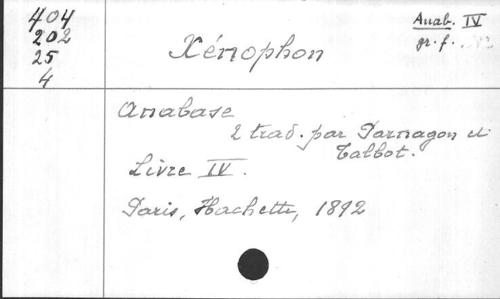 404
202
25
4
Xénophon
Anab. IV
gr. f.
Anabase
2 trad. par Parnagon et
Talbot.
Livre IV.
Paris, Hachette, 1892